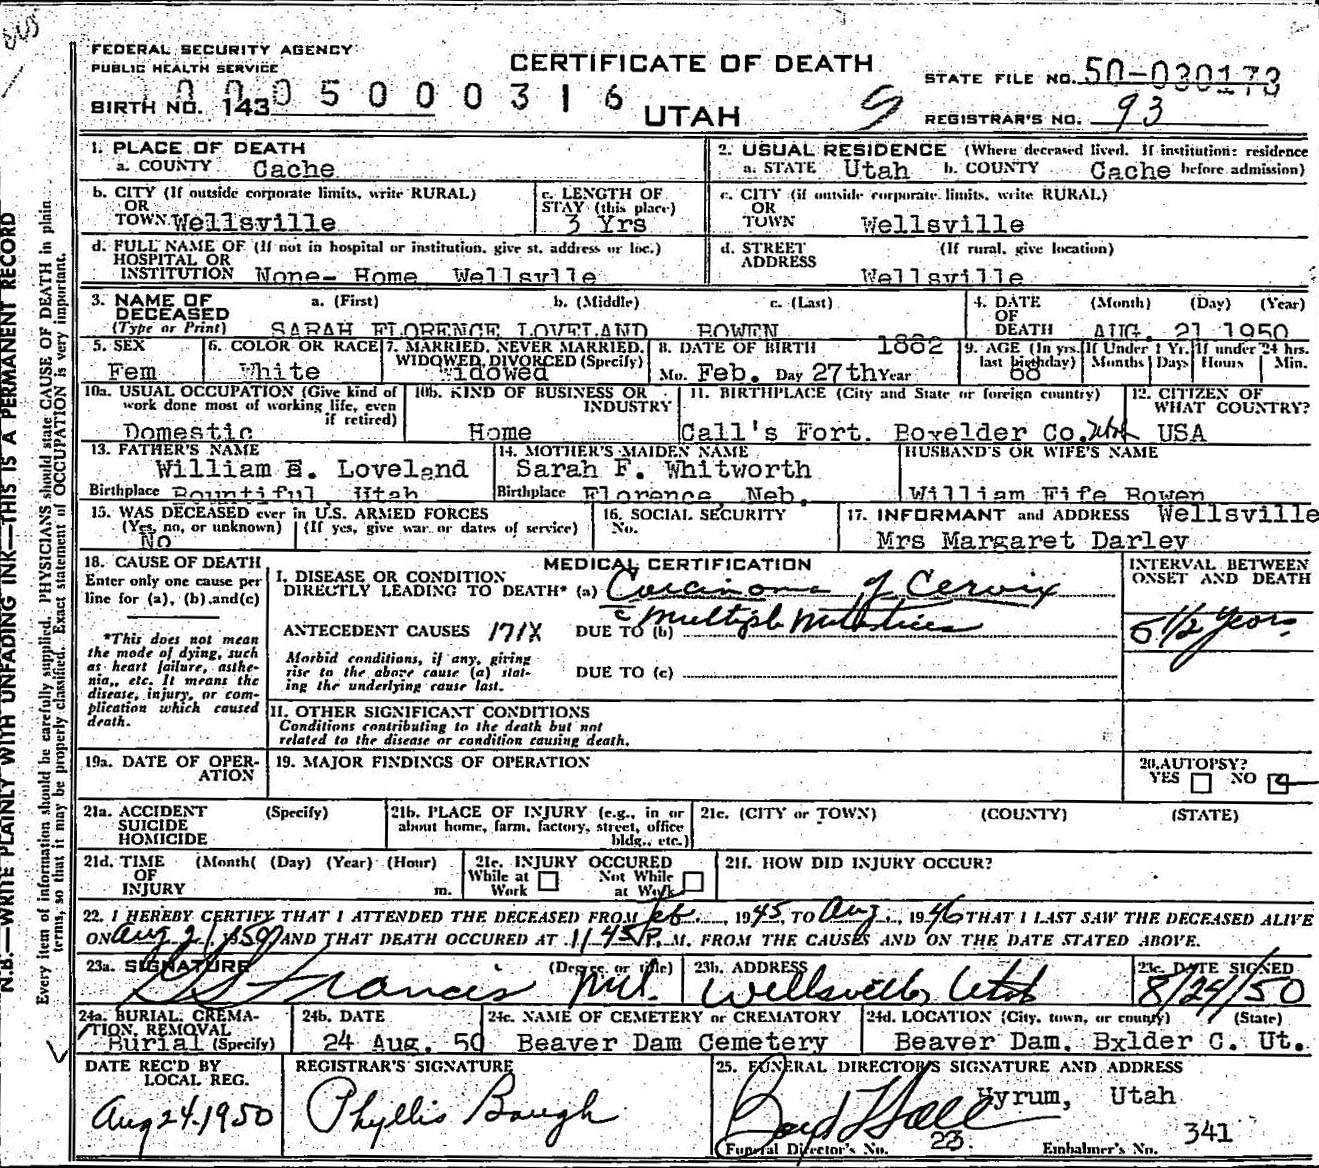 FEDERAL SECURITY AGENCY
PUBLIC HEALTH SERVICE
CERTIFICATE OF DEATH
STATE FILE NO. 50-030173
BIRTH NO. 143 0005000316
UTAH
REGISTRAR'S NO. 93
N.B.—WRITE PLAINLY WITH UNFADING INK—THIS IS A PERMANENT RECORD
Every item of information should be carefully supplied. PHYSICIANS should state CAUSE OF DEATH in plain
terms, so that it may be properly classified. Exact statement of OCCUPATION is very important.
1. PLACE OF DEATH
a. COUNTY Cache
2. USUAL RESIDENCE (Where deceased lived. If institution: residence
a. STATE Utah b. COUNTY Cache before admission)
b. CITY (If outside corporate limits, write RURAL)
OR
TOWN Wellsville
c. LENGTH OF
STAY (this place)
3 Yrs
c. CITY (if outside corporate limits, write RURAL)
OR
TOWN Wellsville
d. FULL NAME OF (If not in hospital or institution, give st. address or loc.)
HOSPITAL OR
INSTITUTION None- Home Wellsvlle
d. STREET (If rural, give location)
ADDRESS
Wellsville
3. NAME OF a. (First) b. (Middle) c. (Last)
DECEASED
(Type or Print) SARAH FLORENCE LOVELAND BOWEN
4. DATE (Month) (Day) (Year)
OF
DEATH AUG. 21 1950
5. SEX
Fem
6. COLOR OR RACE
White
7. MARRIED, NEVER MARRIED,
WIDOWED, DIVORCED (Specify)
Widowed
8. DATE OF BIRTH 1882
Mo. Feb. Day 27th Year
9. AGE (In yrs. If Under 1 Yr. If under 24 hrs.
last birthday) Months Days Hours Min.
68
10a. USUAL OCCUPATION (Give kind of
work done most of working life, even
if retired)
Domestic
10b. KIND OF BUSINESS OR
INDUSTRY
Home
11. BIRTHPLACE (City and State or foreign country)
Call's Fort. Boxelder Co. Utah
12. CITIZEN OF
WHAT COUNTRY?
USA
13. FATHER'S NAME
William E. Loveland
Birthplace Bountiful Utah
14. MOTHER'S MAIDEN NAME
Sarah F. Whitworth
Birthplace Florence, Neb.
HUSBAND'S OR WIFE'S NAME
William Fife Bowen
15. WAS DECEASED ever in U.S. ARMED FORCES
(Yes, no, or unknown) (If yes, give war or dates of service)
No
16. SOCIAL SECURITY
No.
17. INFORMANT and ADDRESS Wellsville
Mrs Margaret Darley
18. CAUSE OF DEATH
Enter only one cause per
line for (a), (b), and (c)
*This does not mean
the mode of dying, such
as heart failure, asthe-
nia, etc. It means the
disease, injury, or com-
plication which caused
death.
MEDICAL CERTIFICATION
I. DISEASE OR CONDITION
DIRECTLY LEADING TO DEATH* (a) Carcinoma of Cervix
c̄ multiple metastices
ANTECEDENT CAUSES 171X DUE TO (b)
Morbid conditions, if any, giving
rise to the above cause (a) stat-
ing the underlying cause last.
DUE TO (c)
INTERVAL BETWEEN
ONSET AND DEATH
5 1/2 years
II. OTHER SIGNIFICANT CONDITIONS
Conditions contributing to the death but not
related to the disease or condition causing death.
19a. DATE OF OPER-
ATION
19. MAJOR FINDINGS OF OPERATION
20. AUTOPSY?
YES NO
21a. ACCIDENT (Specify)
SUICIDE
HOMICIDE
21b. PLACE OF INJURY (e.g., in or
about home, farm, factory, street, office
bldg., etc.)
21c. (CITY or TOWN) (COUNTY) (STATE)
21d. TIME (Month( (Day) (Year) (Hour)
OF
INJURY m.
21e. INJURY OCCURED
While at Not While
Work at Work
21f. HOW DID INJURY OCCUR?
22. I HEREBY CERTIFY THAT I ATTENDED THE DECEASED FROM Feb, 1945, TO Aug, 1946 THAT I LAST SAW THE DECEASED ALIVE
ON Aug 21 1950 AND THAT DEATH OCCURED AT 11 45 P.M. FROM THE CAUSES AND ON THE DATE STATED ABOVE.
23a. SIGNATURE (Degree or title)
Francis M.D.
23b. ADDRESS
Wellsville, Utah
23c. DATE SIGNED
8/24/50
24a. BURIAL, CREMA-
TION, REMOVAL
Burial (Specify)
24b. DATE
24 Aug. 50
24c. NAME OF CEMETERY or CREMATORY
Beaver Dam Cemetery
24d. LOCATION (City, town, or county) (State)
Beaver Dam. Bxlder C. Ut.
DATE REC'D BY
LOCAL REG.
Aug 24. 1950
REGISTRAR'S SIGNATURE
Phyllis Baugh
25. FUNERAL DIRECTOR'S SIGNATURE AND ADDRESS
Boyd Hall Hyrum, Utah
Funeral Director's No. 23 Embalmer's No. 341